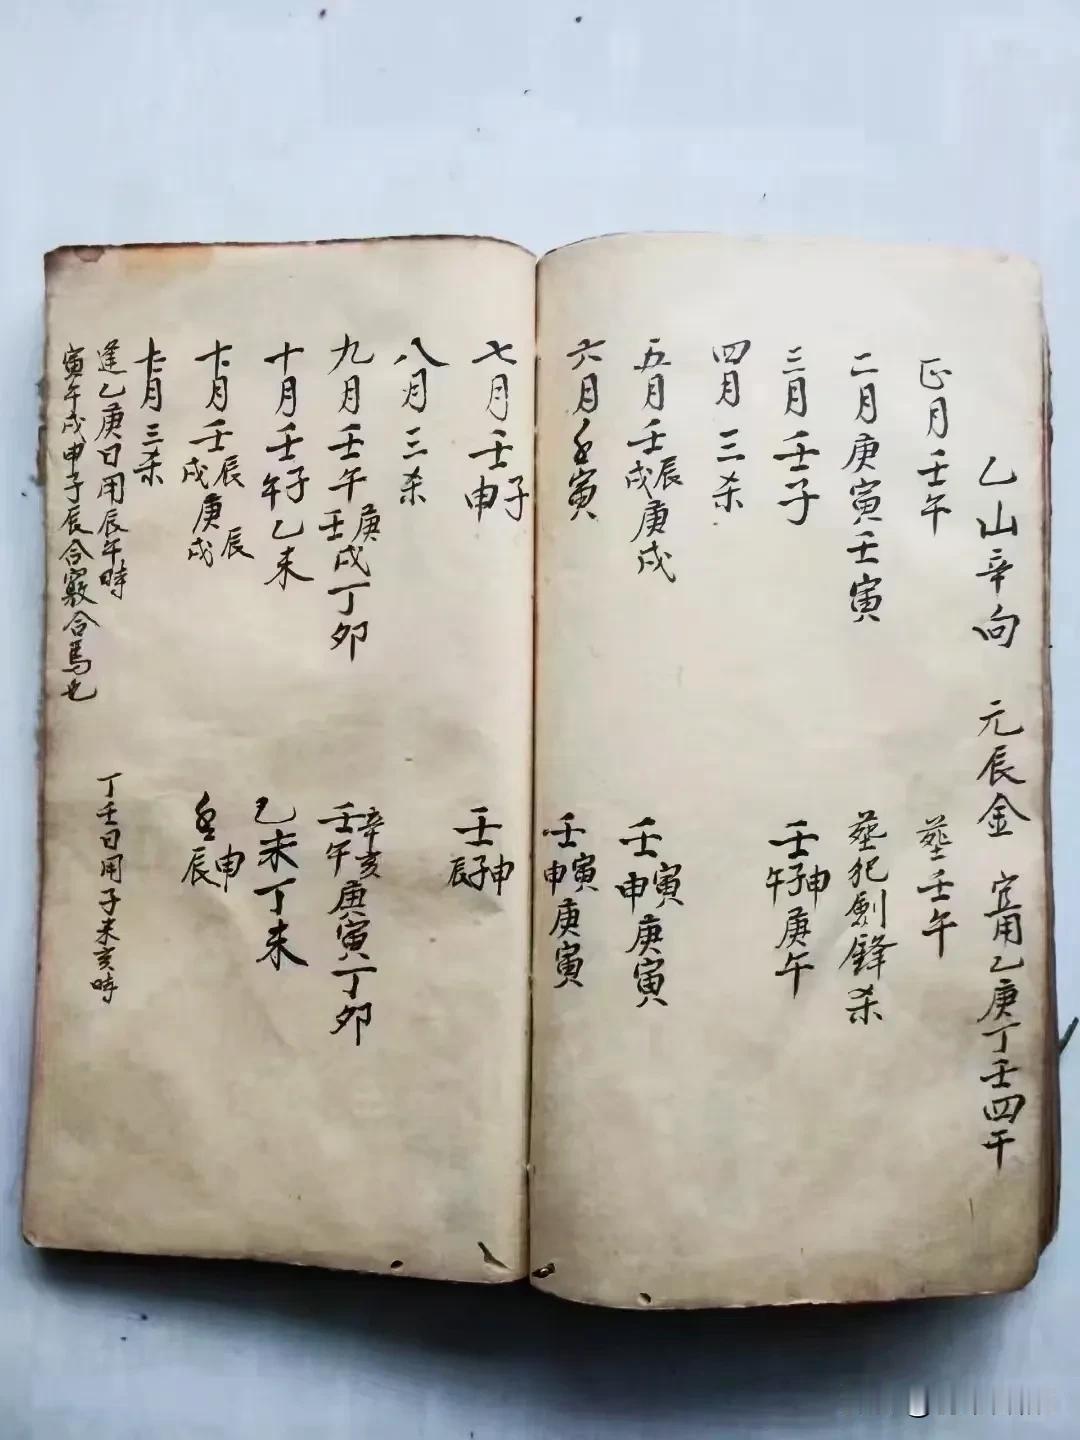 乙山辛向 元辰金 宜用乙庚丁壬四干
正月壬午 葬壬午
二月庚寅壬寅 葬犯劍鋒杀
三月壬子 壬午子申庚午
四月三杀
五月壬戌辰庚戌 壬申寅庚寅
六月壬寅 壬申寅庚寅
七月壬申子 壬辰子申
八月三杀
九月壬午壬戌庚丁卯 壬午辛亥庚寅丁卯
十月壬午子乙未 乙未丁未
十一月壬戌辰庚戌辰 壬辰申
十二月三杀
逢乙庚日用辰午時 丁壬日用子未亥時
寅午戌申子辰合竅合馬也